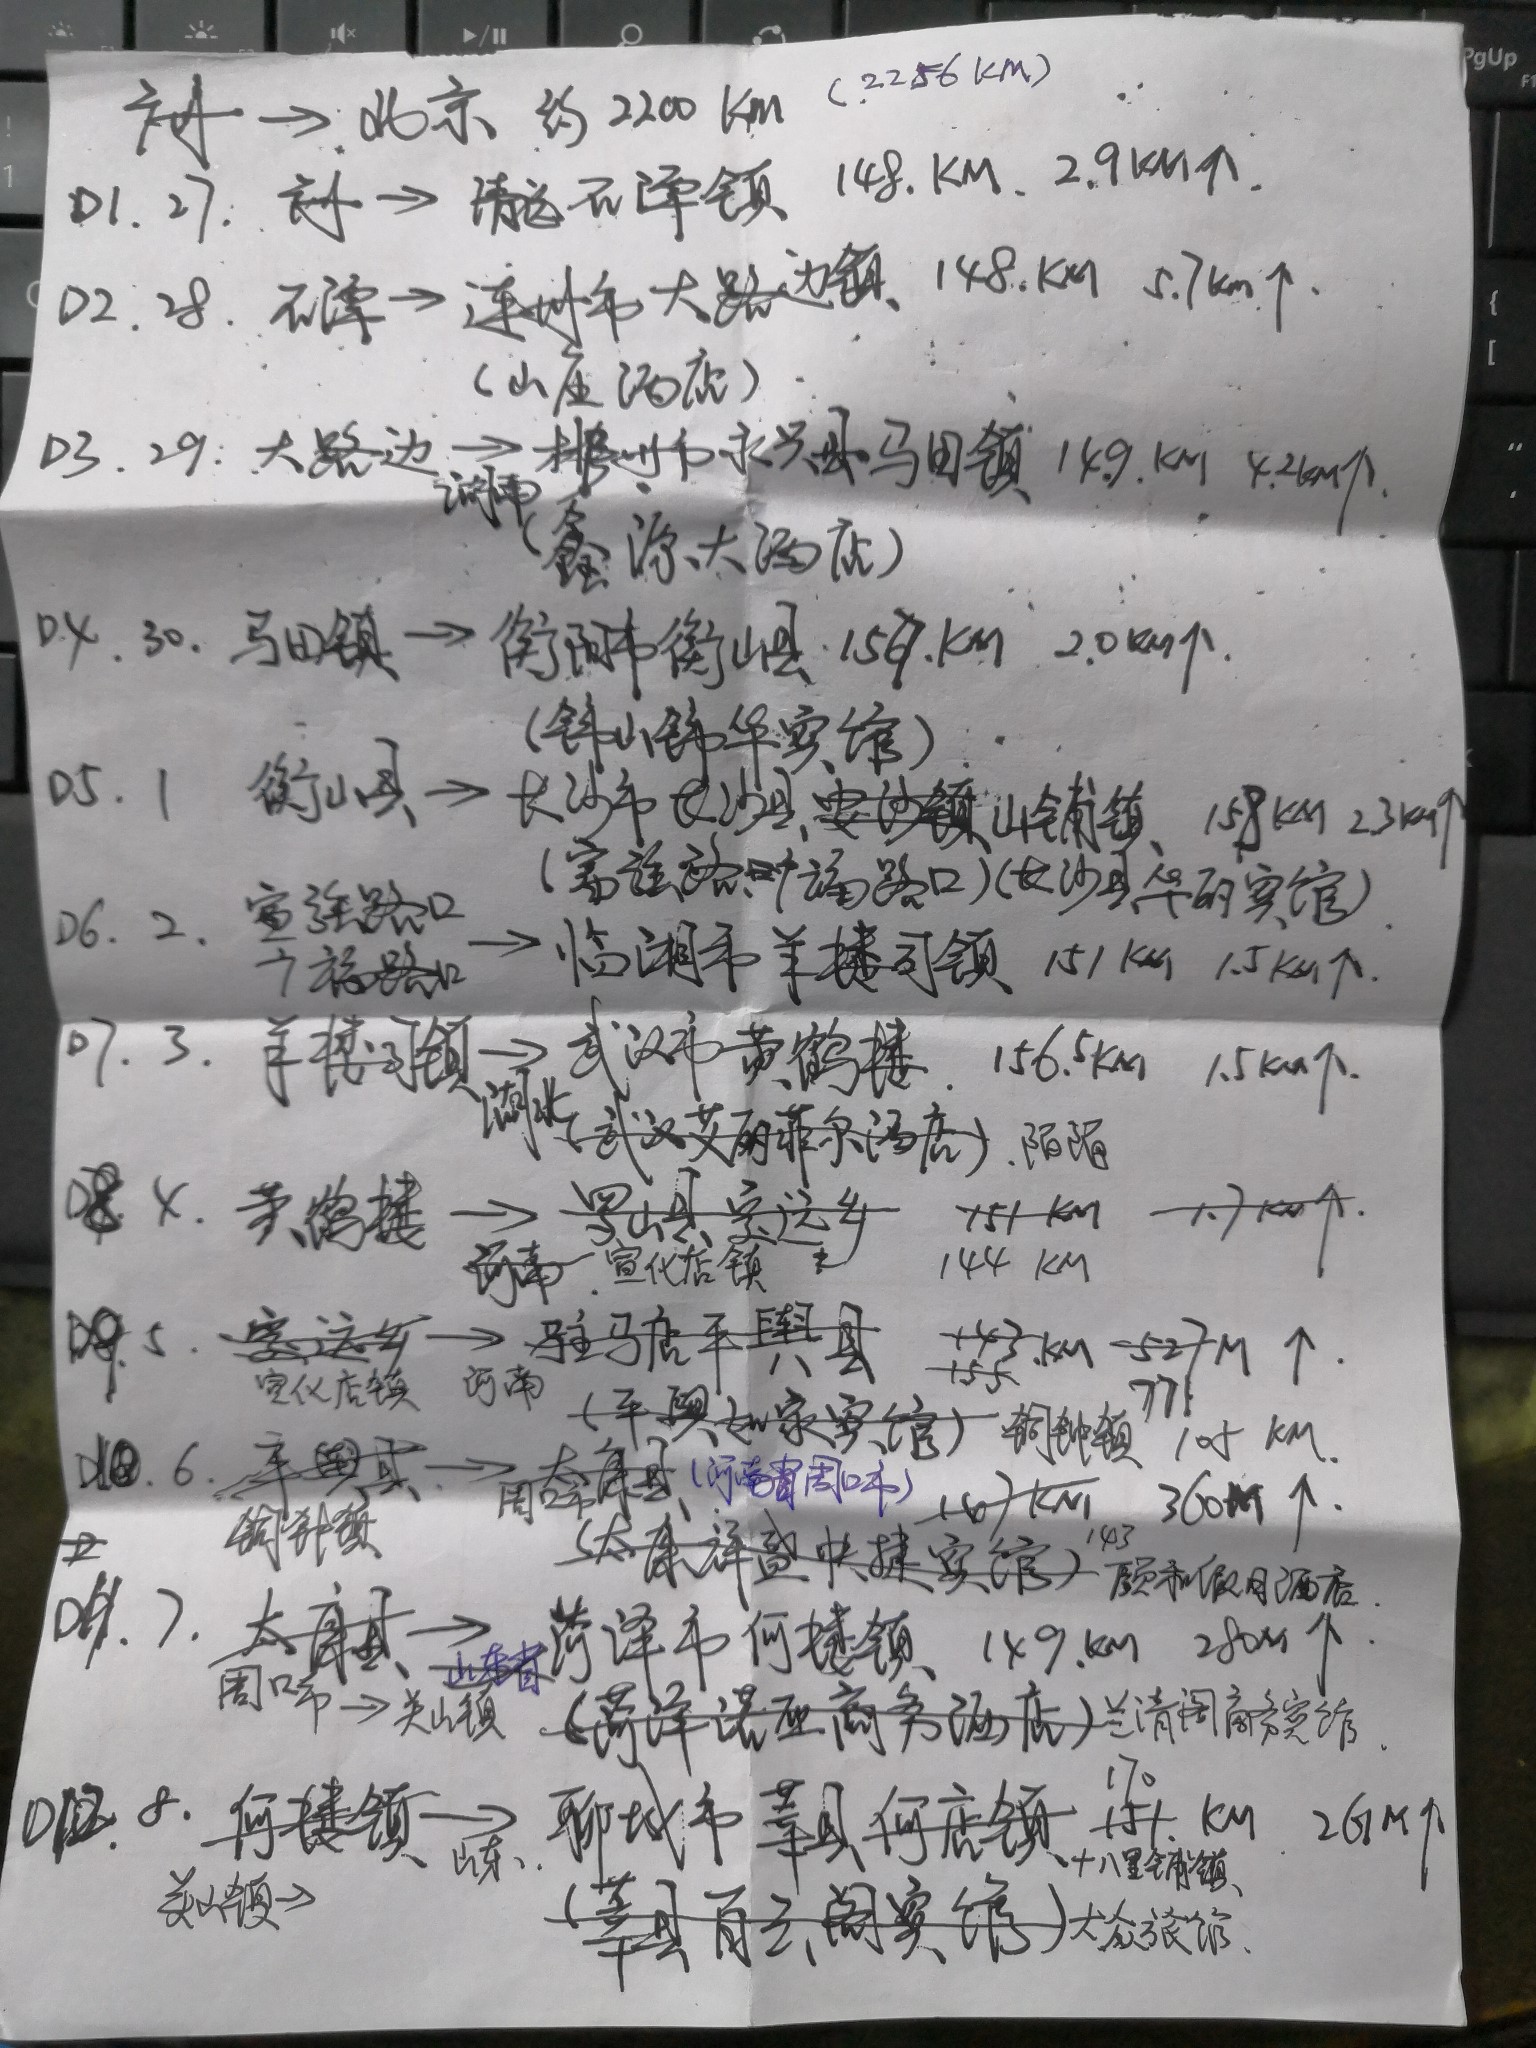 → 北京 约 2200 KM (2256KM)
D1. 27. → 清远石潭镇 148. KM. 2.9KM↑.
D2. 28. 石潭 → 连州市大路边镇 148. KM 5.7km↑.
(山庄酒店)
D3. 29. 大路边 → 郴州市永兴县马田镇 149. KM 4.2KM↑.
湖南
(鑫源大酒店)
D4. 30. 马田镇 → 衡阳市衡山县 KM 2.0KM↑.
(锦山锦华宾馆)
D5. 1 衡山县 → 长沙市长沙县安沙镇山铺镇 158KM 2.3KM↑
路口)(长沙县华丽宾馆)
D6. 2. 路口 → 临湘市羊楼司镇 151 KM 1.5KM↑.
路口
D7. 3. 羊楼司镇 → 武汉市黄鹤楼. 156.5KM 1.5KM↑.
湖北 (武汉艾丽菲尔酒店). 陌陌
D8. 4. 黄鹤楼 → 罗山县定远乡 151 KM 1.7KM↑.
河南. 宣化店镇 144 KM
D9. 5. 定远乡 → 驻马店平舆县 143.KM 527M ↑.
宣化店镇 河南 155
(平舆如家宾馆) 铜钟镇 105 KM.
D10. 6. 平舆县 → 太康县 (河南省周口市) 167KM 360M ↑.
铜钟镇 周口市
(太康祥盛快捷宾馆) 143 颐和假日酒店.
D11. 7. 太康县 → 菏泽市何楼镇 149.KM 280M↑.
周口市 → 关山镇 山东省
(菏泽诺亚商务酒店) 兰清阁商务宾馆.
D12. 8. 何楼镇 → 聊城市莘县何店镇 151. KM 261M↑
山东. 170
关山镇 → 十八里铺镇
(莘县百云阁宾馆) 大众旅馆.